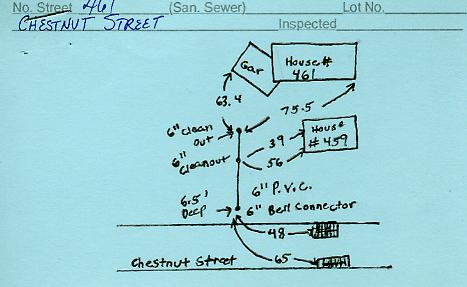 No. Street 461 (San. Sewer) Lot No.
CHESTNUT STREET Inspected
Gar
House #
461
63.4
75.5
6" Clean
out
39
House
# 459
6"
Cleanout
56
6" P.V.C.
6.5'
Deep
6" Bell Connector
48
Chestnut Street
65